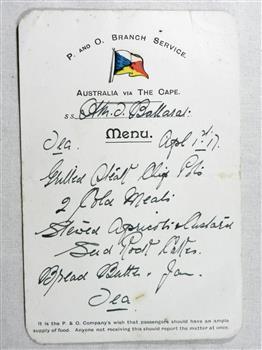 P. AND O. BRANCH SERVICE.
AUSTRALIA VIA THE CAPE.
S.S. Ballarat
Menu.
Tea. Apl 1st 17.
Grilled Steak Chip Pots
2 Cold Meats
Stewed Apricots & Custard
Seed Rock Cakes.
Bread Butter. Jam.
Tea
It is the P. & O. Company's wish that passengers should have an ample
supply of food. Anyone not receiving this should report the matter at once.